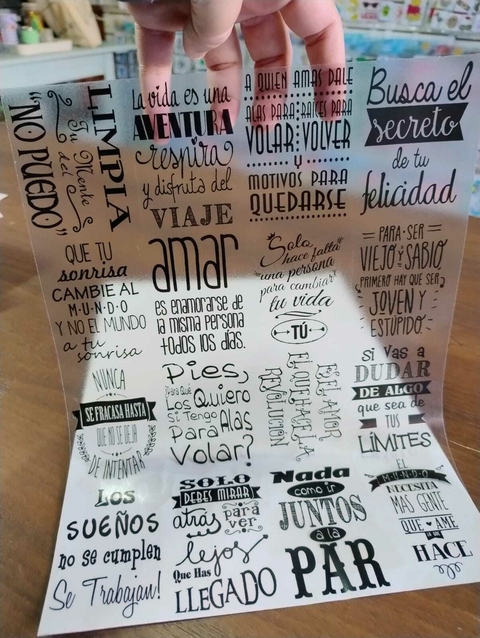 LIMPIA
Tu Mente
del
"NO PUEDO"
La vida es una
AVENTURA
respira
y disfruta del
VIAJE
A QUIEN AMAS DALE
ALAS PARA RAÍCES PARA
VOLAR VOLVER
Y
MOTIVOS PARA
QUEDARSE
Busca el
secreto
de tu
felicidad
QUE TU
sonrisa
CAMBIE AL
M·U·N·D·O
Y NO EL MUNDO
a tu
sonrisa
amar
es enamorarse de
la misma persona
todos los días.
Solo
hace falta
una persona
para cambiar
tu vida
TÚ
PARA SER
VIEJO Y SABIO
PRIMERO HAY QUE SER
JOVEN Y
ESTÚPIDO
NUNCA
SE FRACASA HASTA
QUE NO SE DEJA
DE INTENTAR
Pies,
¿Para Qué
Los Quiero
Si Tengo
Alas
Para
Volar?
ES EL AMOR
EL QUE HACE LA
REVOLUCIÓN
Si Vas a
DUDAR
DE ALGO
que sea de
TUS
LÍMITES
LOS
SUEÑOS
no se cumplen
Se Trabajan!
SOLO
DEBES MIRAR
atrás para
ver
lejos
Que Has
LLEGADO
Nada
como ir
JUNTOS
a la
PAR
EL
MUNDO
NECESITA
MAS GENTE
QUE AME
LO QUE
HACE